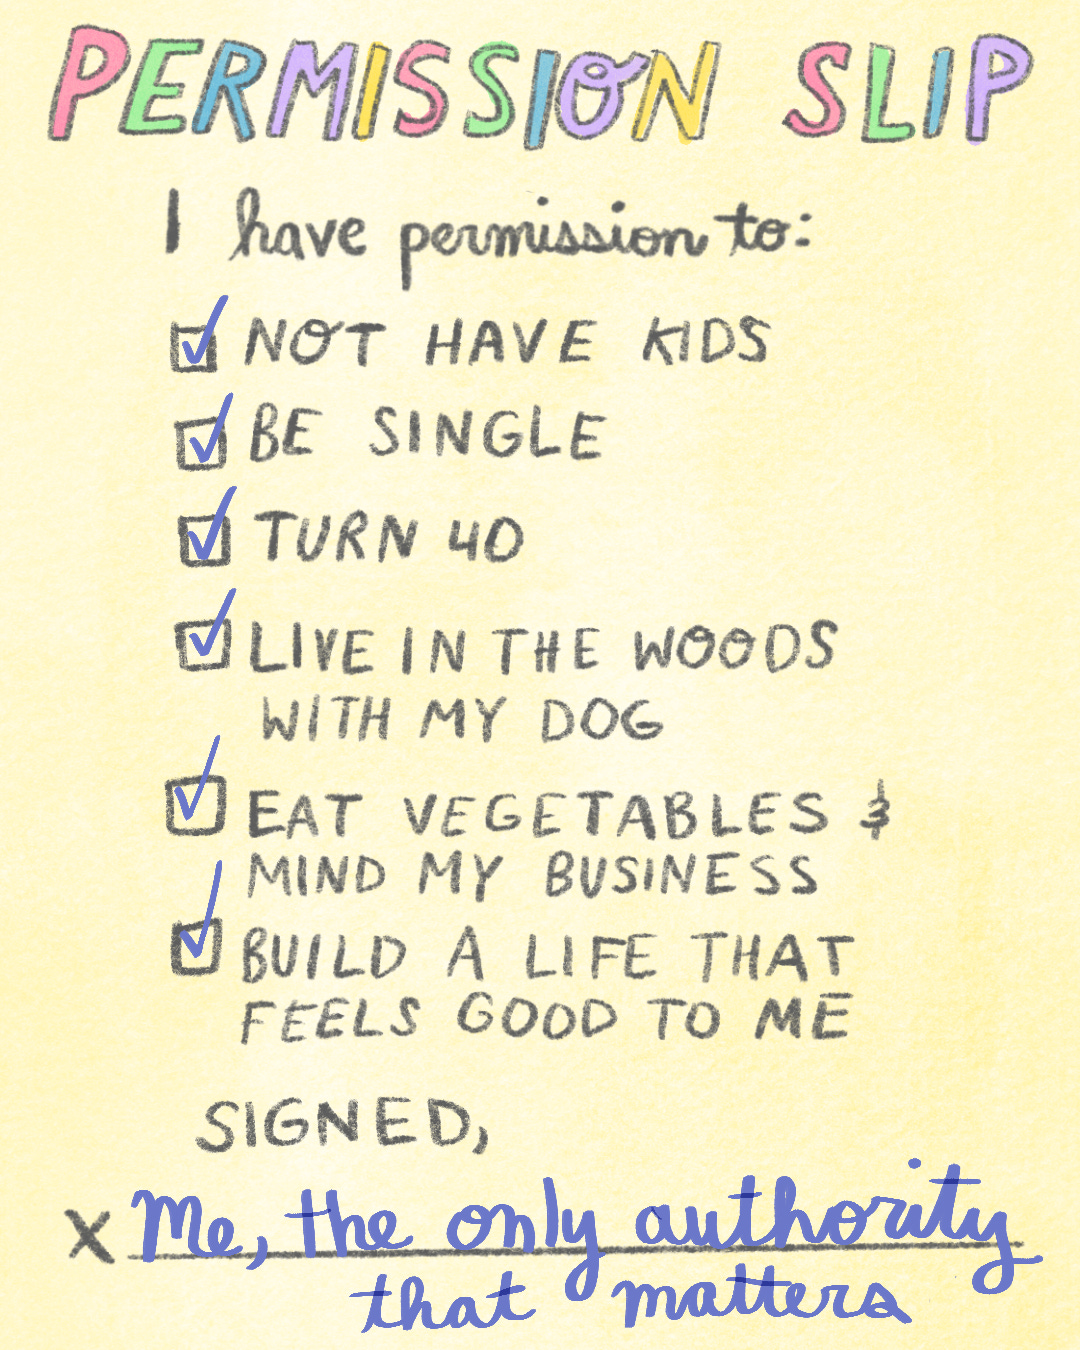 PERMISSION SLIP
I have permission to:
NOT HAVE KIDS
BE SINGLE
TURN 40
LIVE IN THE WOODS
WITH MY DOG
EAT VEGETABLES &
MIND MY BUSINESS
BUILD A LIFE THAT
FEELS GOOD TO ME
SIGNED,
X Me, the only authority
that matters